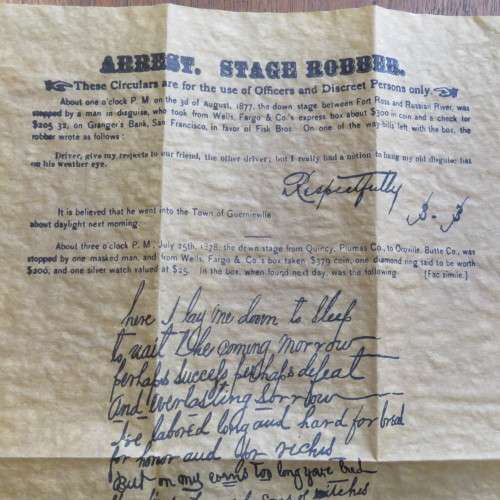 ARREST. STAGE ROBBER.
These Circulars are for the use of Officers and Discreet Persons only.
About one o'clock P. M. on the 3d of August, 1877, the down stage between Fort Ross and Russian River, was
stopped by a man in disguise, who took from Wells, Fargo & Co.'s express box about $300 in coin and a check for
$205.32, on Granger's Bank, San Francisco, in favor of Fisk Bros. On one of the way-bills left with the box, the
robber wrote as follows:
Driver, give my respects to our friend, the other driver; but I really had a notion to hang my old disguise hat
on his weather eye.
Respectfully B. B
It is believed that he went into the Town of Guerneville
about daylight next morning.
About three o'clock P. M., July 25th, 1878, the down stage from Quincy, Plumas Co., to Oroville, Butte Co., was
stopped by one masked man, and from Wells, Fargo & Co.'s box taken $379 coin, one diamond ring said to be worth
$200, and one silver watch valued at $25. In the box, when found next day, was the following [Fac simile.]
here I lay me down to Sleep
to wait the coming morrow
perhaps success perhaps defeat
And everlasting Sorrow
I've labored long and hard for bred
for honor and for riches
But on my corns too long youve tred